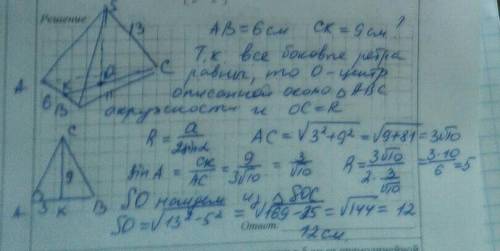 Решение
S
13
AB = 6 см CK = 9 см ?
Т.к все боковые ребра
равны, то О-центр
описанной около △ABC
окружности и OC = R
A
K
O
C
6
B
R = a / 2sinα
AC = √3²+9² = √9+81 = 3√10
sin A = CK / AC = 9 / 3√10 = 3 / √10
R = 3√10 / 2 · 3/√10 = 3·10 / 6 = 5
C
9
A
3
K
B
SO найдем из △SOC
SO = √13² - 5² = √169 - 25 = √144 = 12
Ответ:
12 см